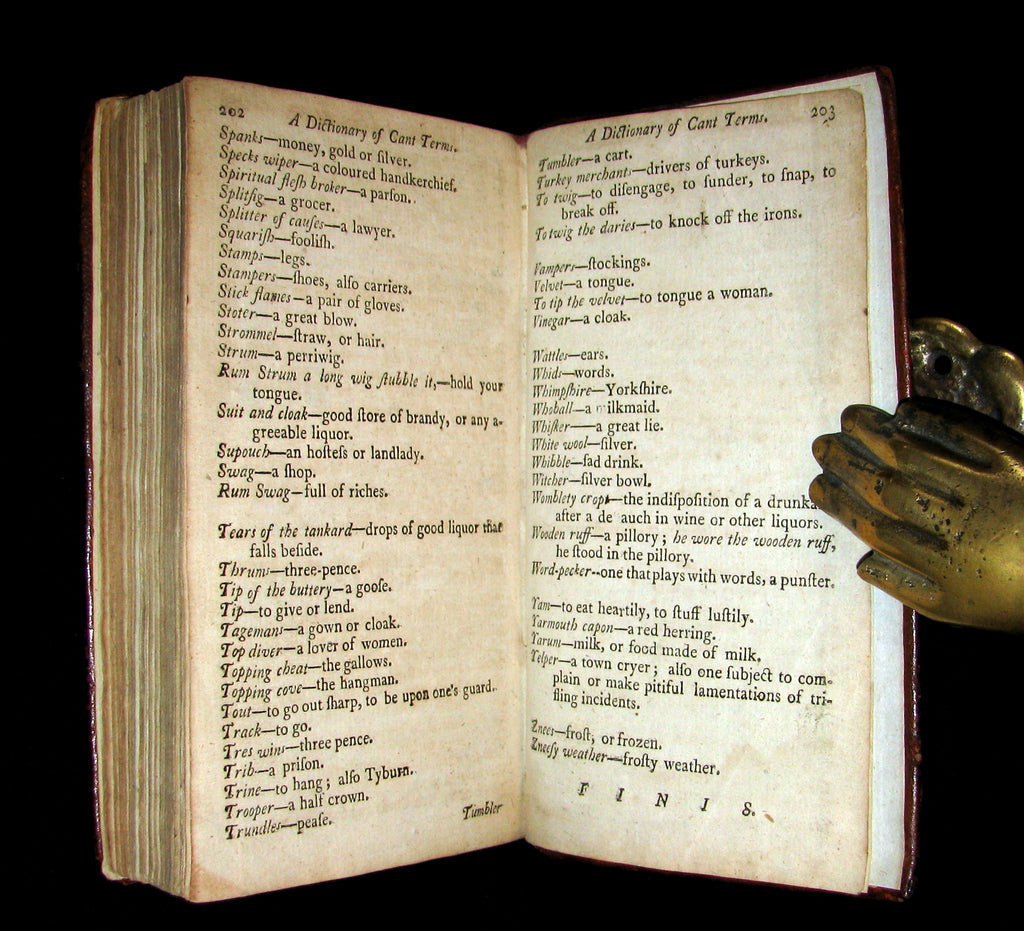 202
A Dictionary of Cant Terms.
Spanks—money, gold or ſilver.
Specks wiper—a coloured handkerchief.
Spiritual fleſh broker—a parſon.
Splitfig—a grocer.
Splitter of cauſes—a lawyer.
Squariſh—fooliſh.
Stamps—legs.
Stampers—ſhoes, alſo carriers.
Stick flames—a pair of gloves.
Stoter—a great blow.
Strommel—ſtraw, or hair.
Strum—a perriwig.
Rum Strum a long wig ſtubble it,—hold your
tongue.
Suit and cloak—good ſtore of brandy, or any a-
greeable liquor.
Supouch—an hoſteſs or landlady.
Swag—a ſhop.
Rum Swag—full of riches.
Tears of the tankard—drops of good liquor that
falls beſide.
Thrums—three-pence.
Tip of the buttery—a gooſe.
Tip—to give or lend.
Tagemans—a gown or cloak.
Top diver—a lover of women.
Topping cheat—the gallows.
Topping cove—the hangman.
Tout—to go out ſharp, to be upon one's guard.
Track—to go.
Tres wins—three pence.
Trib—a priſon.
Trine—to hang; alſo Tyburn.
Trooper—a half crown.
Trundles—peaſe.
Tumbler
A Dictionary of Cant Terms.
203
Tumbler—a cart.
Turkey merchants—drivers of turkeys.
To twig—to diſengage, to ſunder, to ſnap, to
break off.
To twig the daries—to knock off the irons.
Vampers—ſtockings.
Velvet—a tongue.
To tip the velvet—to tongue a woman.
Vinegar—a cloak.
Wattles—ears.
Whids—words.
Whimpſhire—Yorkſhire.
Whoball—a milkmaid.
Whiſker—a great lie.
White wool—ſilver.
Whibble—ſad drink.
Witcher—ſilver bowl.
Womblety cropt—the indiſpoſition of a
after a de auch in wine or other liquors.
Wooden ruff—a pillory; he wore the wooden ruff,
he ſtood in the pillory.
Word-pecker--one that plays with words, a punſter.
Yam—to eat heartily, to ſtuff luſtily.
Yarmouth capon—a red herring.
Yarum—milk, or food made of milk.
Yelper—a town cryer; alſo one ſubject to com-
plain or make pitiful lamentations of tri-
fling incidents.
Znees—froſt, or frozen.
Zneeſy weather—froſty weather.
F I N I S.